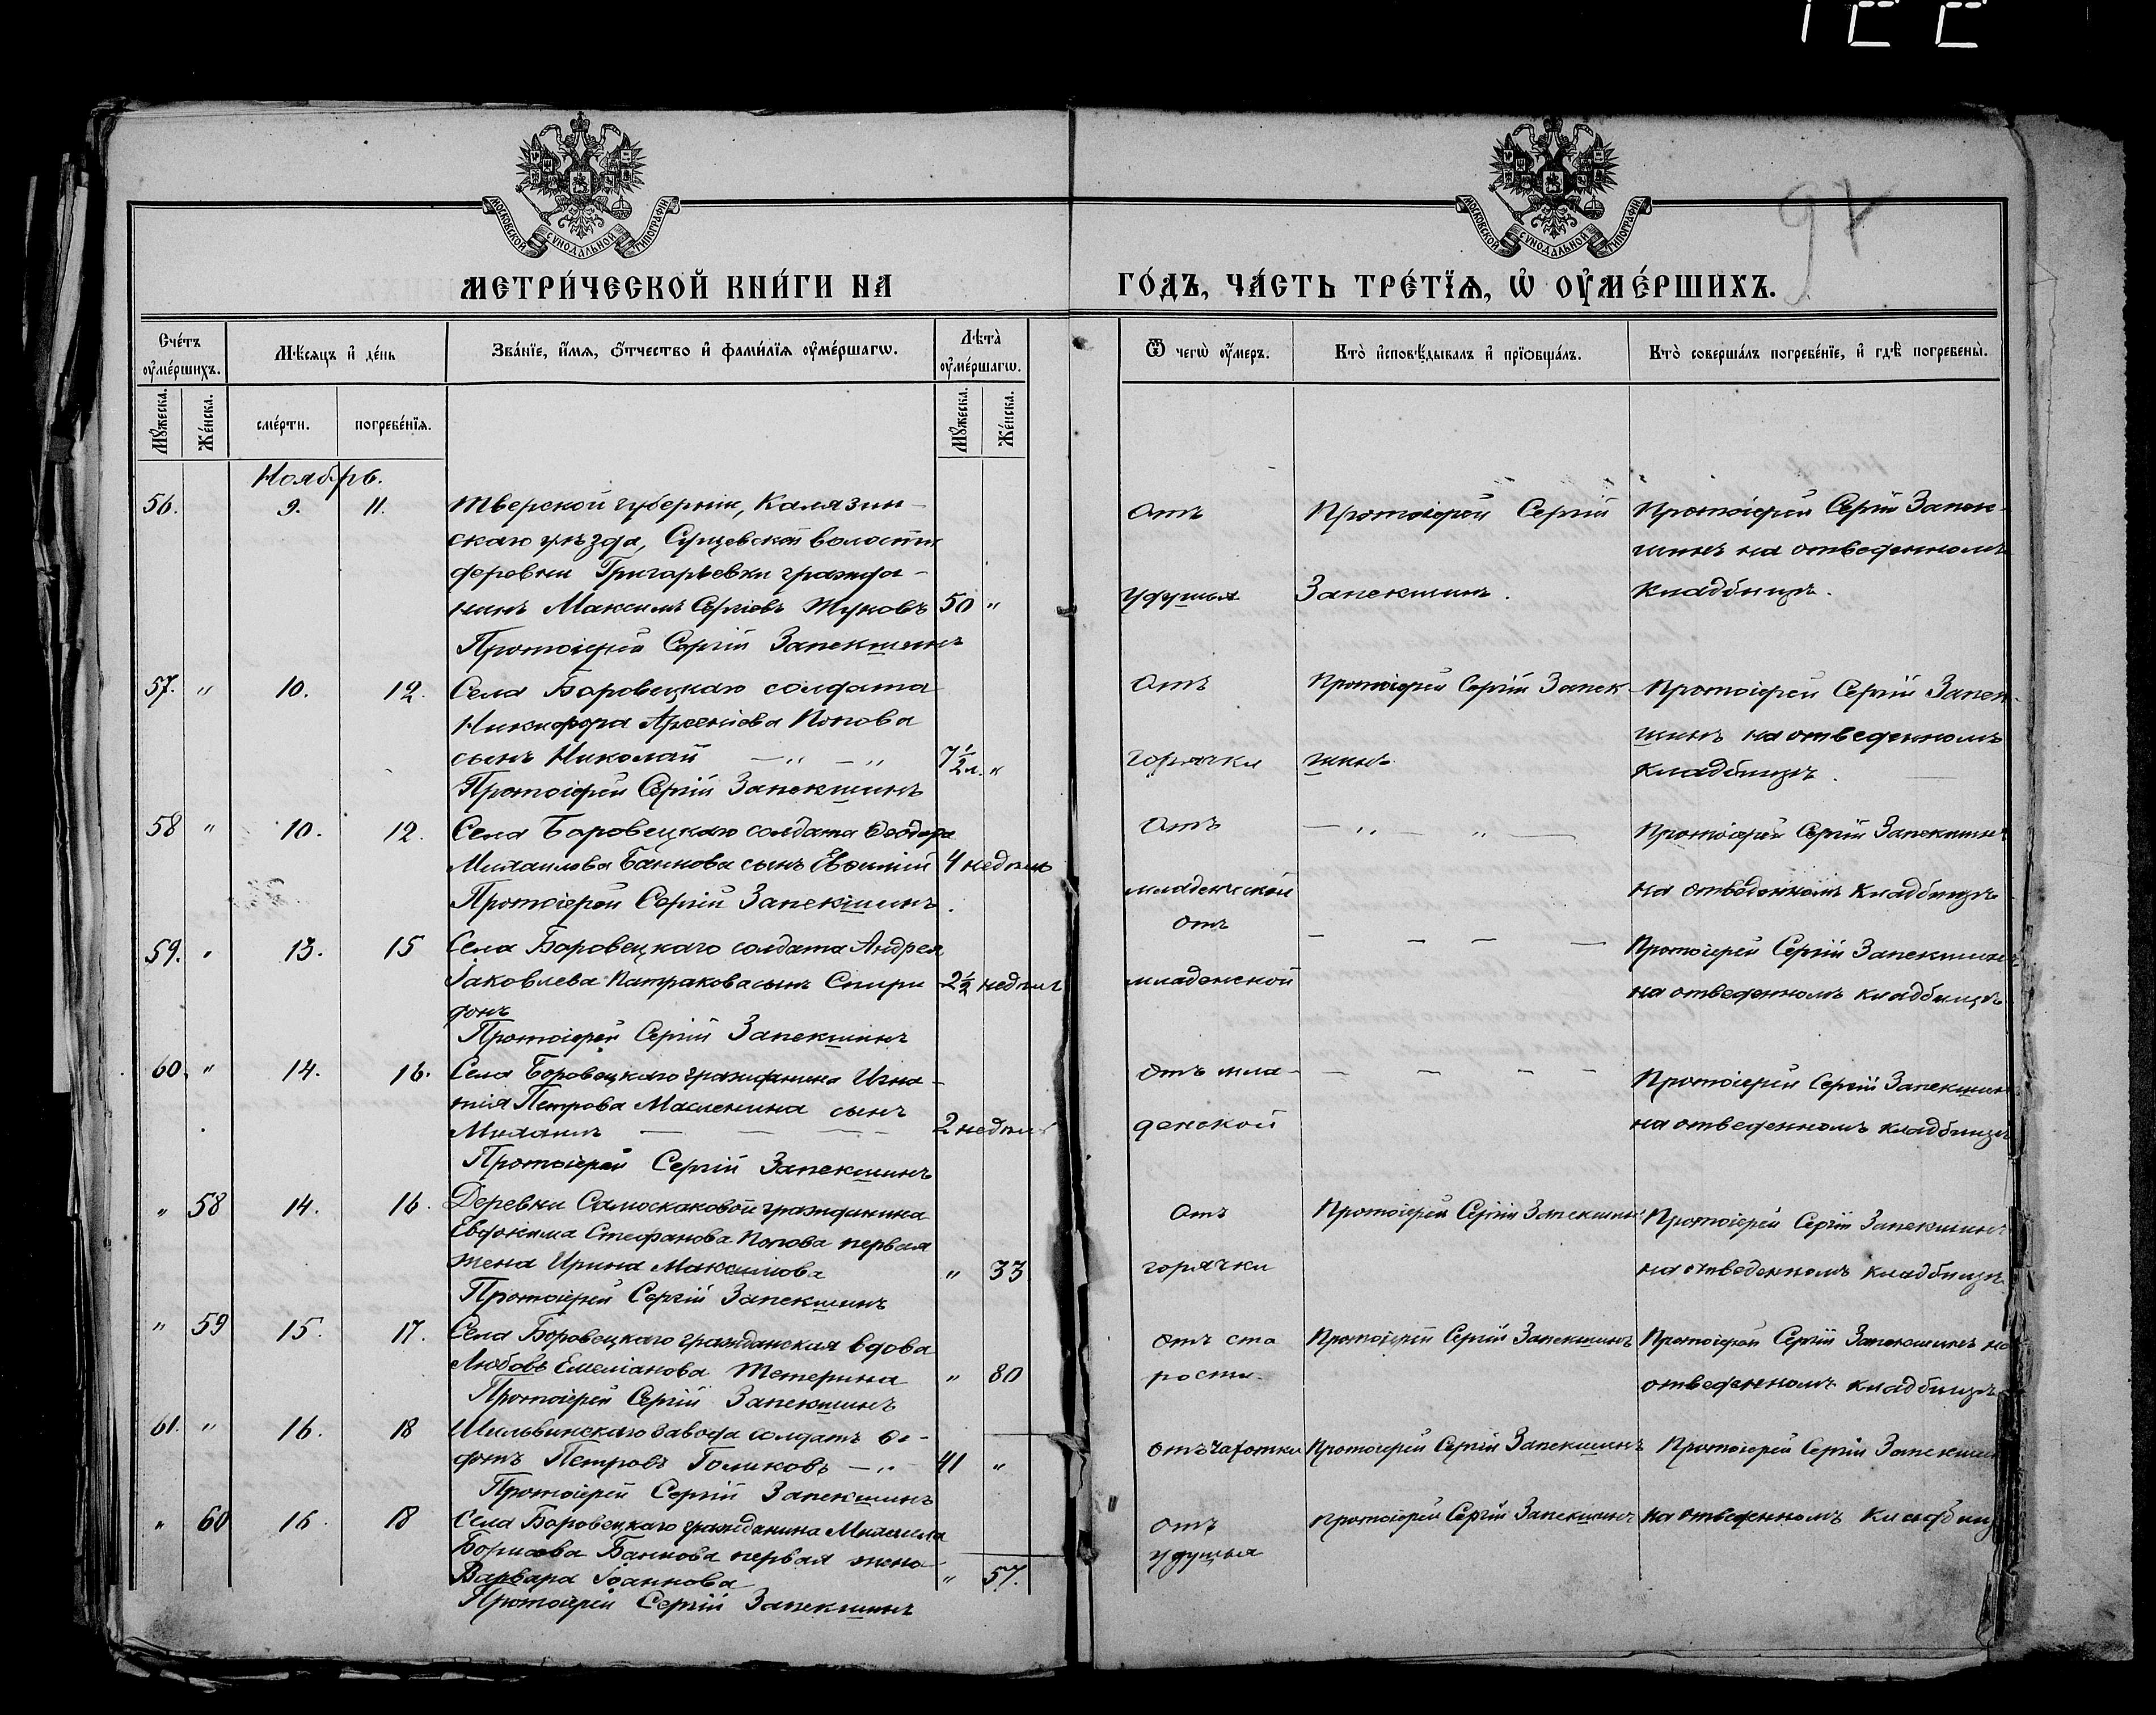 97
МОСКОВСКОЙ СѴНОДАЛЬНОЙ ТИПОГРАФІИ
МОСКОВСКОЙ СѴНОДАЛЬНОЙ ТИПОГРАФІИ
МЕТРИ́ЧЕСКОЙ КНИ́ГИ НА ГО́ДЪ, ЧА́СТЬ ТРЕ́ТЇѦ, Ѡ҆ ОУ҆МЕ́РШИХЪ.
Сче́тъ оу҆ме́ршихъ.
Мѣ́сяцъ и҆ де́нь
Зва́нїе, и҆́мя, ѻ҆́тчество и҆ фами́лїя оу҆ме́ршагѡ.
Лѣта̀ оу҆ме́ршагѡ.
Ѿ чегѡ̀ оу҆́меръ.
Кто̀ и҆сповѣ́дывалъ и҆ прїѡбща́лъ.
Кто̀ соверша́лъ погребе́нїе, и҆ гдѣ̀ погребены̀.
Мꙋ́жеска. Же́нска. сме́рти. погребе́нїя. Мꙋ́жеска. Же́нска.
Ноябрь.
56. 9. 11. Тверской губерніи, Калязин-
скаго уѣзда, Сущевской волости
деревни Григорьевки гражда-
нинъ Максимъ Сергіевъ Жуковъ 50 "
Протоіерей Сергій Запекшинъ
Отъ
удушья
Протоіерей Сергій
Запекшинъ.
Протоіерей Сергій Запек-
шинъ на отведенномъ
кладбищѣ.
57. " 10. 12. Села Боровецкаго солдата
Никифора Арсеніева Попова
сынъ Николай 7½ л. "
Протоіерей Сергій Запекшинъ
Отъ
горячки
Протоіерей Сергій Запек-
шинъ
Протоіерей Сергій Запек-
шинъ на отведенномъ
кладбищѣ.
58 " 10. 12. Села Боровецкаго солдата Ѳеодора
Михаилова Банкова сынъ Евѳимій 4 недѣли
Протоіерей Сергій Запекшинъ.
Отъ
младенческой
— " — " —
Протоіерей Сергій Запекшинъ
на отведенномъ кладбищѣ
59. " 13. 15 Села Боровецкаго солдата Андрея
Іаковлева Патракова сынъ Спири
донъ 2½ недѣли
Протоіерей Сергій Запекшинъ
отъ
младенской
— — — —
Протоіерей Сергій Запекшинъ
на отведенномъ кладбищѣ
60. " 14. 16. Села Боровецкаго гражданина Игна-
тія Петрова Масленина сынъ
Михаилъ — — — 2 недѣли
Протоіерей Сергій Запекшинъ
Отъ мла-
денской
— — — —
Протоіерей Сергій Запекшинъ
на отведенномъ кладбищѣ
" 58 14. 16. Деревни Самоскаковой гражданина
Евдокима Стефанова Попова первая
жена Ирина Максимова " 33
Протоіерей Сергій Запекшинъ
Отъ
горячки
Протоіерей Сергій Запекшинъ
Протоіерей Сергій Запекшинъ
на отведенномъ кладбищѣ
" 59 15. 17. Села Боровецкаго гражданская вдова
Любовь Емеліанова Тетерина " 80
Протоіерей Сергій Запекшинъ
Отъ ста
рости.
Протоіерей Сергій Запекшинъ
Протоіерей Сергій Запекшинъ на
отведенномъ кладбищѣ
61. " 16. 18 Шильвинскаго завода солдатъ Ѳе-
дотъ Петровъ Голиковъ — " 41 "
Протоіерей Сергій Запекшинъ
Отъ чахотки
Протоіерей Сергій Запекшинъ
Протоіерей Сергій Запекшин
" 60 16 18 Села Боровецкаго гражданина Михаила
Борисова Банкова первая жена
Варвара Іоаннова " 57.
Протоіерей Сергій Запекшинъ
Отъ
удушья
Протоіерей Сергій Запекшинъ
на отведенномъ кладбищ